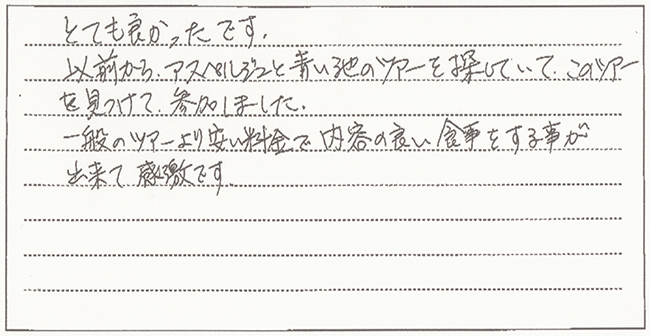 とても良かったです.
以前から、アスペルジュと青い池のツアーを探していて、このツアー
を見つけて、参加しました.
一般のツアーより安い料金で内容の良い食事をする事が
出来て感激です.